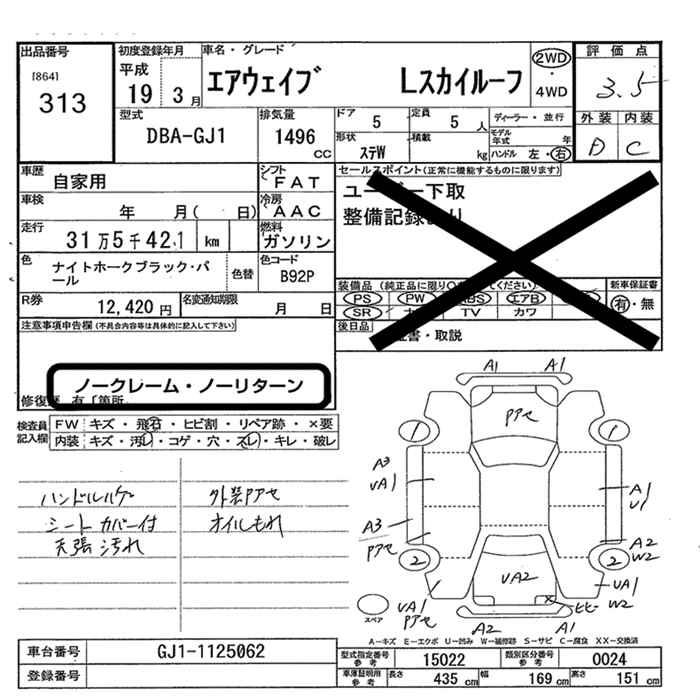 出品番号 初度登録年月 車名・グレード 評価点
[864] 平成 エアウェイブ Lスカイルーフ 2WD・4WD 3.5
313 19 3月
型式 排気量 ドア 5 定員 5人 ディーラー・並行 外装 内装
DBA-GJ1 1496cc 形状 ステW 積載 kg モデル年式 年 D C
ハンドル 左・右
車歴 自家用 シフト FAT セールスポイント(正常に機能するものに限ります)
車検 年 月( 日) 冷房 AAC ユーザー下取
走行 31万5千421 km 燃料 ガソリン 整備記録
色 ナイトホークブラック・パール 色替 色コード B92P 装備品
R券 12,420円 名変通知期限 月 日 PS PW ABS エアB 新車保証書 有・無
SR TV カワ
注意事項申告欄(不具合内容等は具体的に記入して下さい) 後日品 証書・取説
ノークレーム・ノーリターン
修復歴 有「箇所
検査員記入欄 FW キズ・飛石・ヒビ割・リペア跡・×要
内装 キズ・汚レ・コゲ・穴・スレ・キレ・破レ
ハンドルハゲ 外装Pアセ
シートカバー付 オイルもれ
天張汚れ
A1 A1
Pアセ
1 1
A3
UA1 A1
U1
A3
Pアセ A2
W2
2 2
UA2 UA1
W2
UA1
Pアセ ヒビ
スペア A2 A1
A－キズ E－エクボ U－凹み W－補修跡 S－サビ C－腐食 XX－交換済
車台番号 GJ1-1125062 型式指定番号 参考 15022 類別区分番号 参考 0024
登録番号 車庫証明用 参考 長さ 435cm 幅 169cm 高さ 151cm